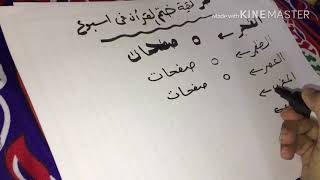 Made with KINEMASTER
ختم القرآن فى اسبوع
الفجر ← ٥ صفحات
الظهر ← ٥ صفحات
العصر ← ٥ صفحات